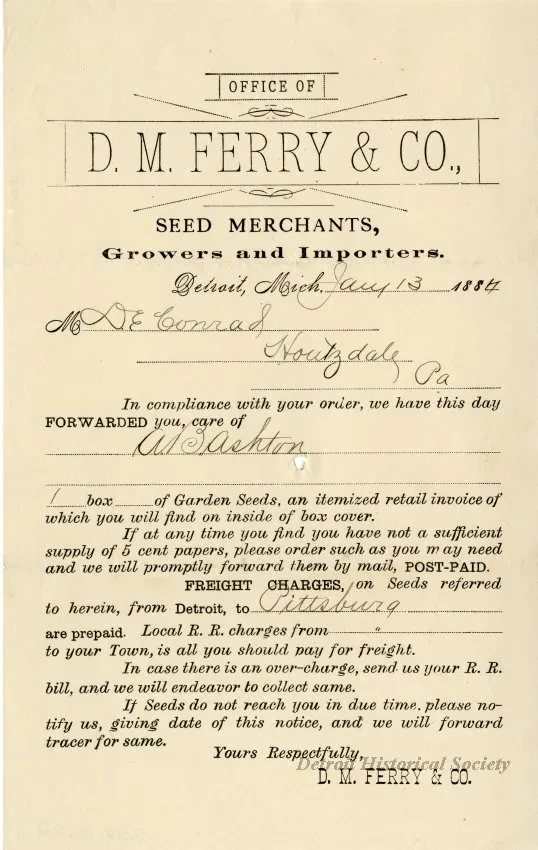 OFFICE OF
D. M. FERRY & CO.,
SEED MERCHANTS,
Growers and Importers.
Detroit, Mich. Jany 13 1884
M D E Conrad
Houtzdale
Pa
In compliance with your order, we have this day
FORWARDED you, care of
A B Ashton
1 box of Garden Seeds, an itemized retail invoice of
which you will find on inside of box cover.
If at any time you find you have not a sufficient
supply of 5 cent papers, please order such as you may need
and we will promptly forward them by mail, POST-PAID.
FREIGHT CHARGES, on Seeds referred
to herein, from Detroit, to Pittsburg
are prepaid. Local R. R. charges from "
to your Town, is all you should pay for freight.
In case there is an over-charge, send us your R. R.
bill, and we will endeavor to collect same.
If Seeds do not reach you in due time, please no-
tify us, giving date of this notice, and we will forward
tracer for same.
Yours Respectfully,
Detroit Historical Society
D. M. FERRY & CO.